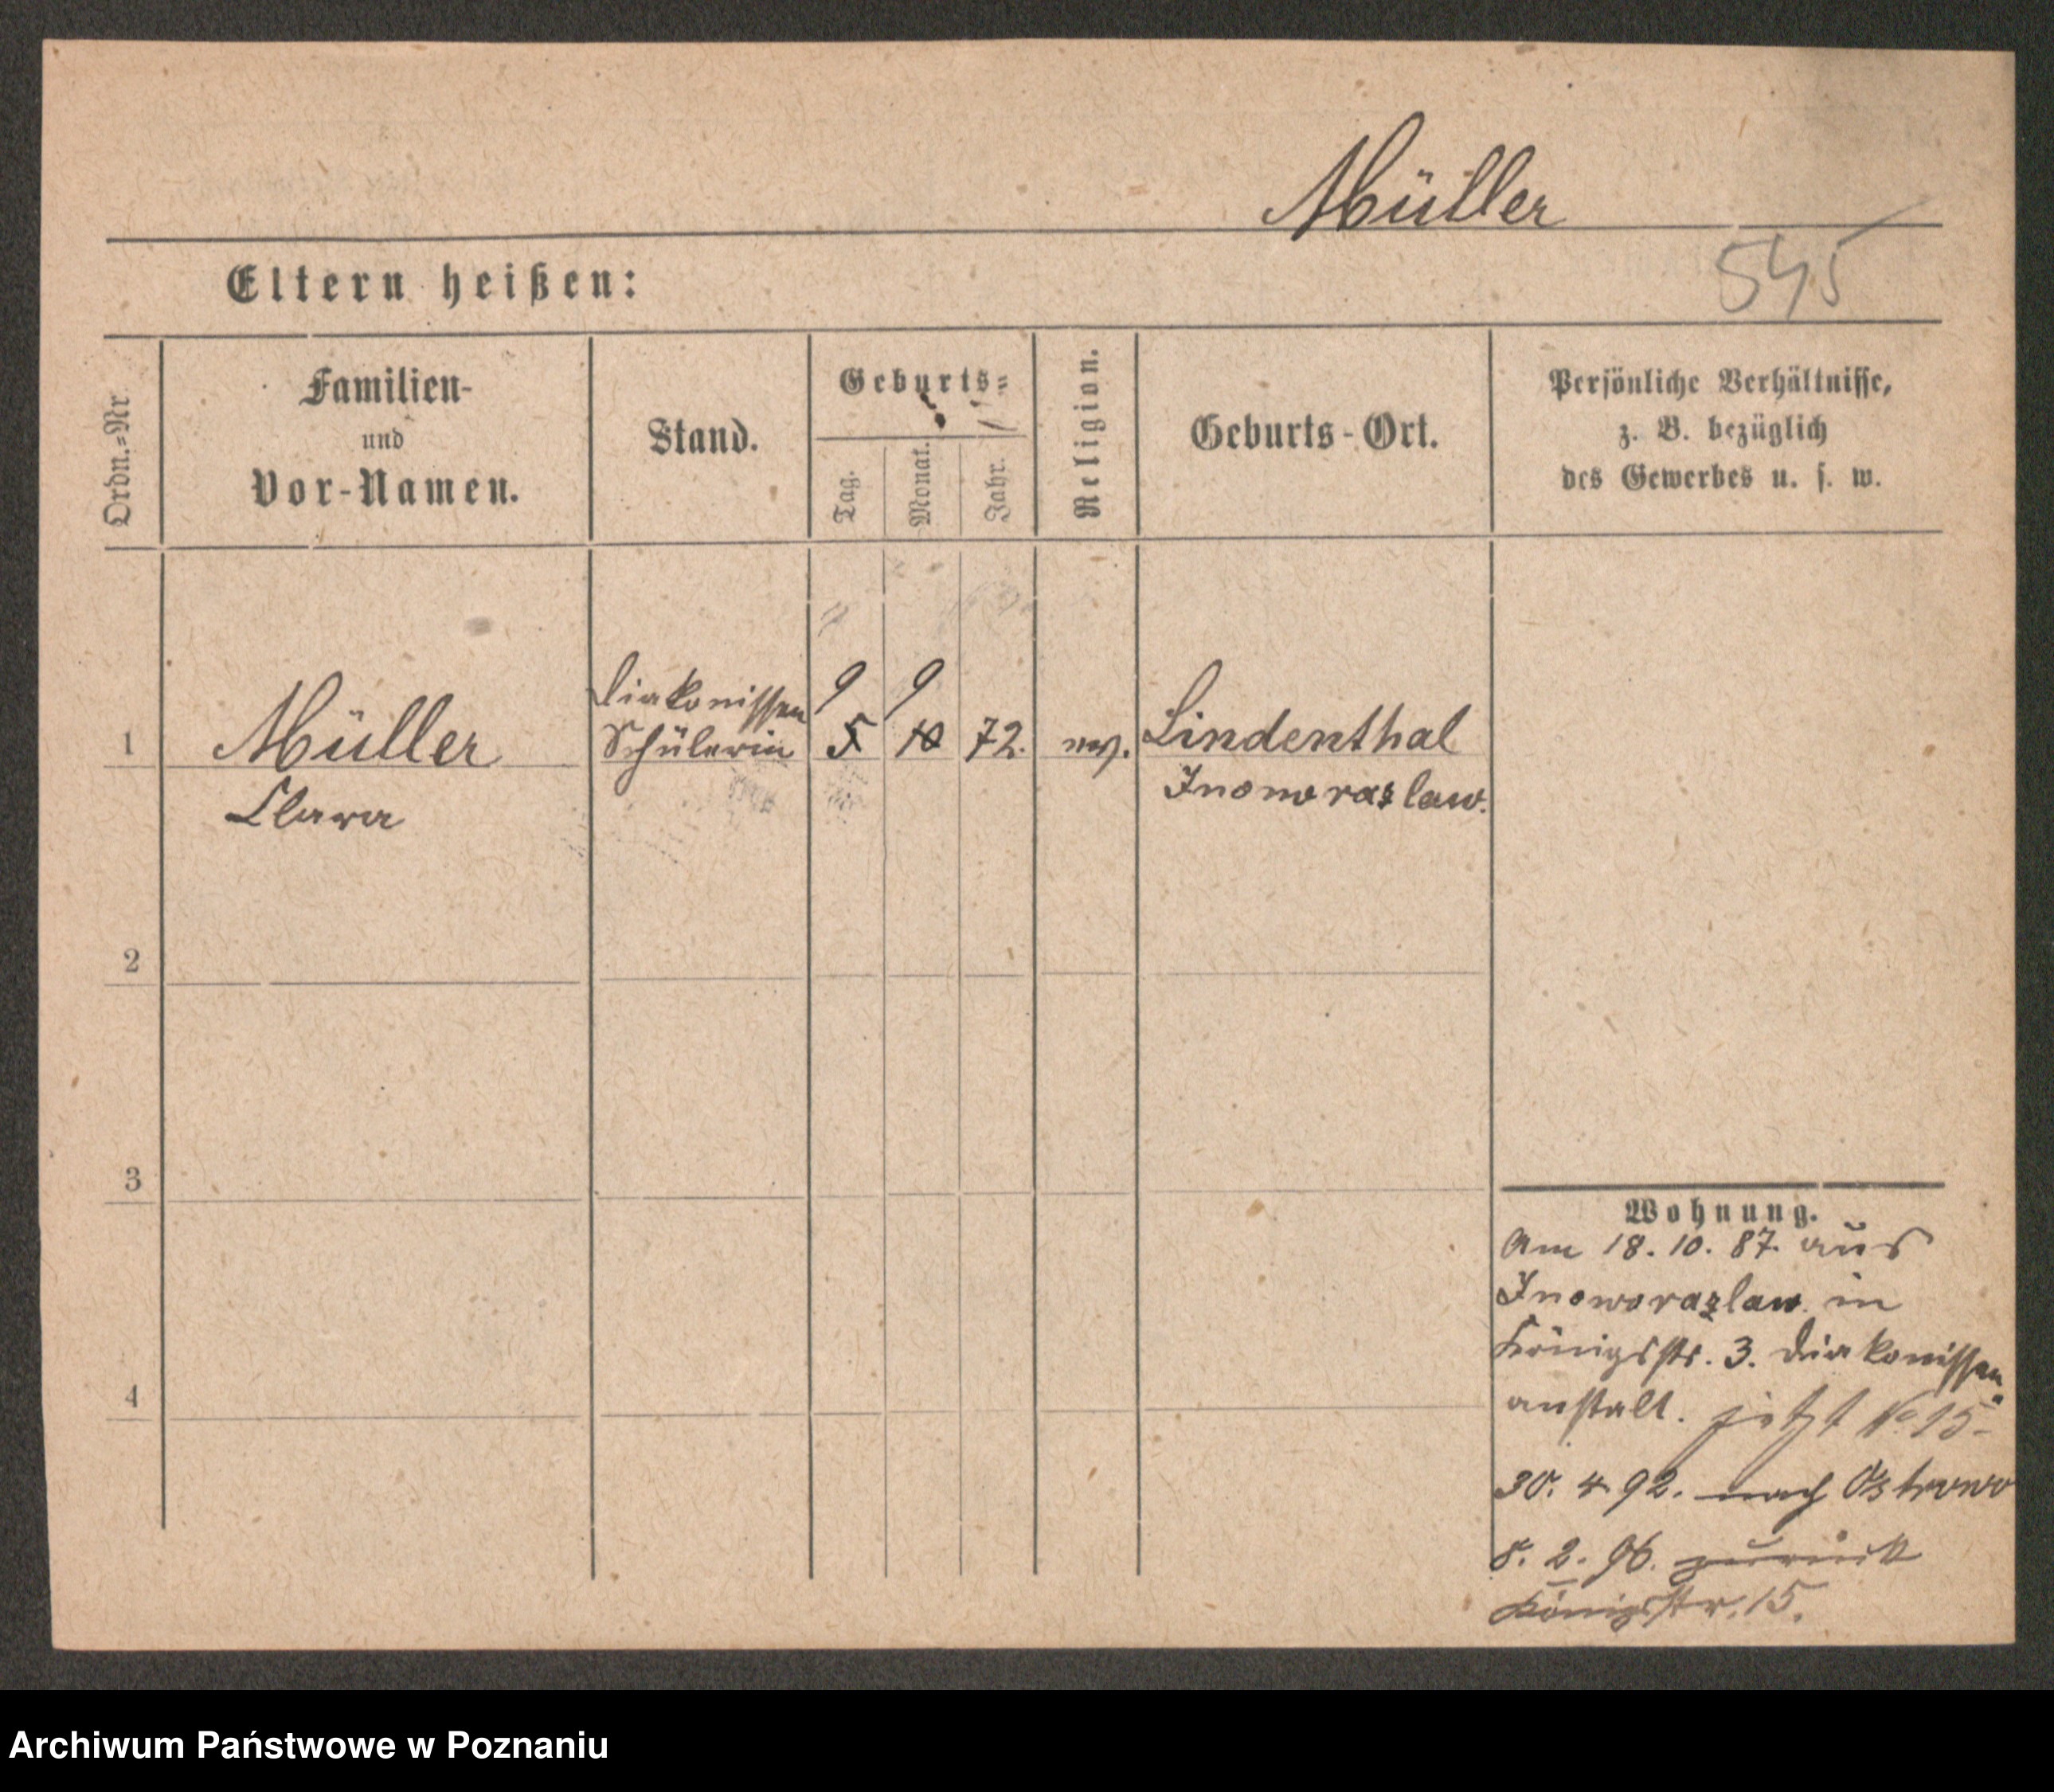 Müller
545
Eltern heißen:
Ordn.=Nr.
Familien-
und
Vor-Namen.
Stand.
Geburts=
Tag.
Monat.
Jahr.
Religion.
Geburts-Ort.
Persönliche Verhältnisse,
z. B. bezüglich
des Gewerbes u. s. w.
1
Müller
Clara
Diakonissen
Schülerin
9 9
5 10 72.
Lindenthal
Inowrazlaw.
2
3
4
Wohnung.
Am 18. 10. 87. aus
Inowrazlaw in
Königsstr. 3. Diakonissen
anstalt. jetzt No 15-
30. 4. 92. nach Ostrowo
8. 2. 96. zurück
Königsstr. 15.
Archiwum Państwowe w Poznaniu